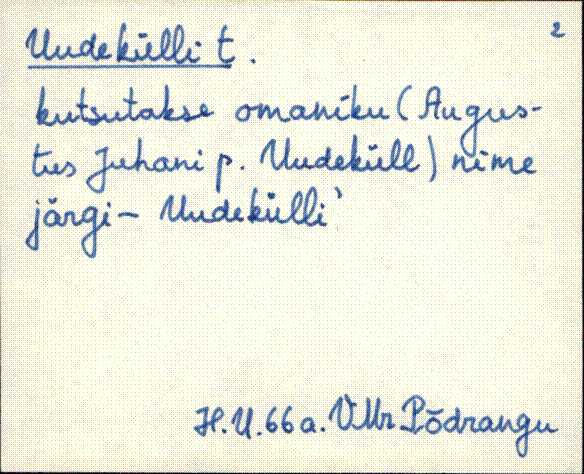 2
Uudekülli t.
kutsutakse omaniku (Augus-
tus Juhani p. Uudeküll) nime
järgi - Uudekülli'
H.U. 66a. VMr Põdrangu